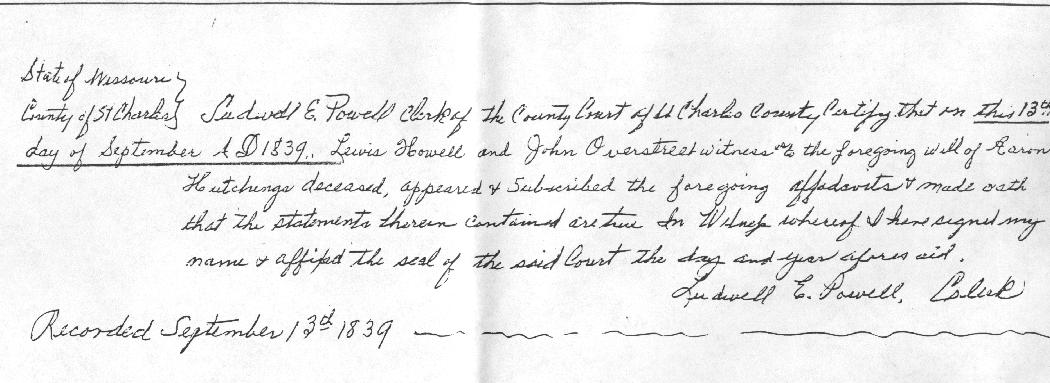 State of Missouri }
County of St Charles } Ludwell E. Powell Clerk of the County Court of St Charles County Certify that on this 13th
day of September A D 1839., Lewis Howell and John Overstreet witness to the foregoing will of Aaron
Hutchings deceased, appeared & Subscribed the foregoing affadavits & made oath
that the statements therein contained are true In Witness whereof I have signed my
name & affixed the seal of the said Court the day and year afores aid.
Ludwell E. Powell, Colerk
Recorded September 13d 1839